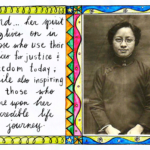 and... her spirit
lives on in
those who use their
voices for justice &
freedom today;
while also inspiring
those who
come upon her
incredible life
journey.